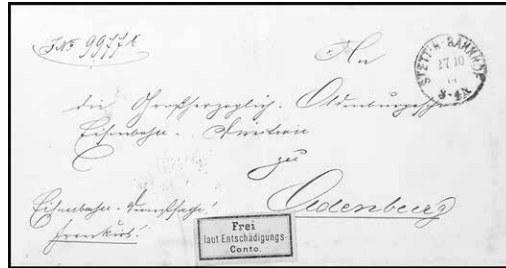 An
STETT-N-BAHNHOF
27 10
3-4N
die Großherzoglich. Oldenburgische
Eisenbahn-Direction
zu
Oldenburg
Eisenbahn-Dienstsache!
Frei
laut Entschädigungs-
Conto.